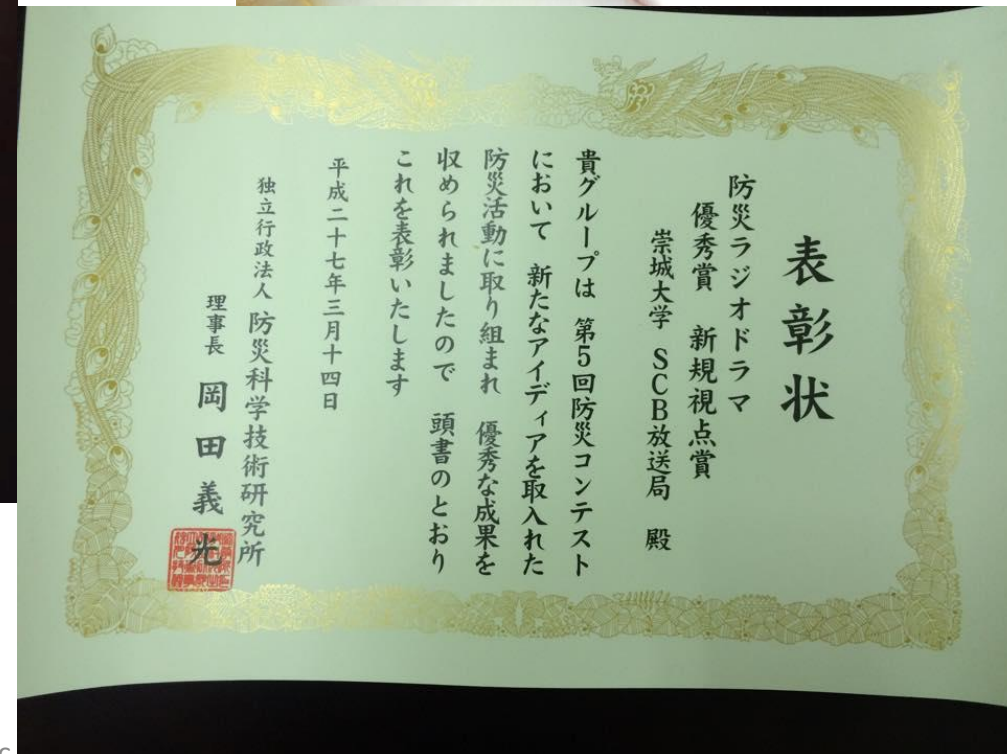 表彰状
防災ラジオドラマ
優秀賞 新規視点賞
崇城大学 SCB放送局 殿
貴グループは 第5回防災コンテスト
において 新たなアイディアを取入れた
防災活動に取り組まれ 優秀な成果を
収められましたので 頭書のとおり
これを表彰いたします
平成二十七年三月十四日
独立行政法人 防災科学技術研究所
理事長 岡田義光